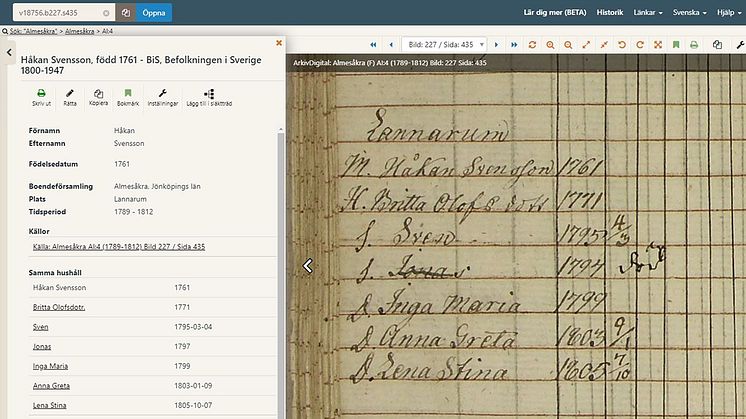 v18756.b227.s435
Öppna
Lär dig mer (BETA)
Historik
Länkar
Svenska
Hjälp
Sök: "Almesåkra" > Almesåkra > AI:4
Bild: 227 / Sida: 435
Håkan Svensson, född 1761 - BiS, Befolkningen i Sverige
1800-1947
Skriv ut
Rätta
Kopiera
Bokmärk
Inställningar
Lägg till i släktträd
Förnamn Håkan
Efternamn Svensson
Födelsedatum 1761
Boendeförsamling Almesåkra, Jönköpings län
Plats Lannarum
Tidsperiod 1789 - 1812
Källor
Källa: Almesåkra AI:4 (1789-1812) Bild 227 / Sida 435
Samma hushåll
Håkan Svensson 1761
Britta Olofsdotr. 1771
Sven 1795-03-04
Jonas 1797
Inga Maria 1799
Anna Greta 1803-01-09
Lena Stina 1805-10-07
ArkivDigital: Almesåkra (F) AI:4 (1789-1812) Bild: 227 Sida: 435
Lannarum
M. Håkan Svensson 1761
H. Britta Olofs dott 1771
S. Sven 1795 4/3
S. Jonas 1797 död
D. Inga Maria 1799
D. Anna Greta 1803 9/1
D. Lena Stina 1805 7/10